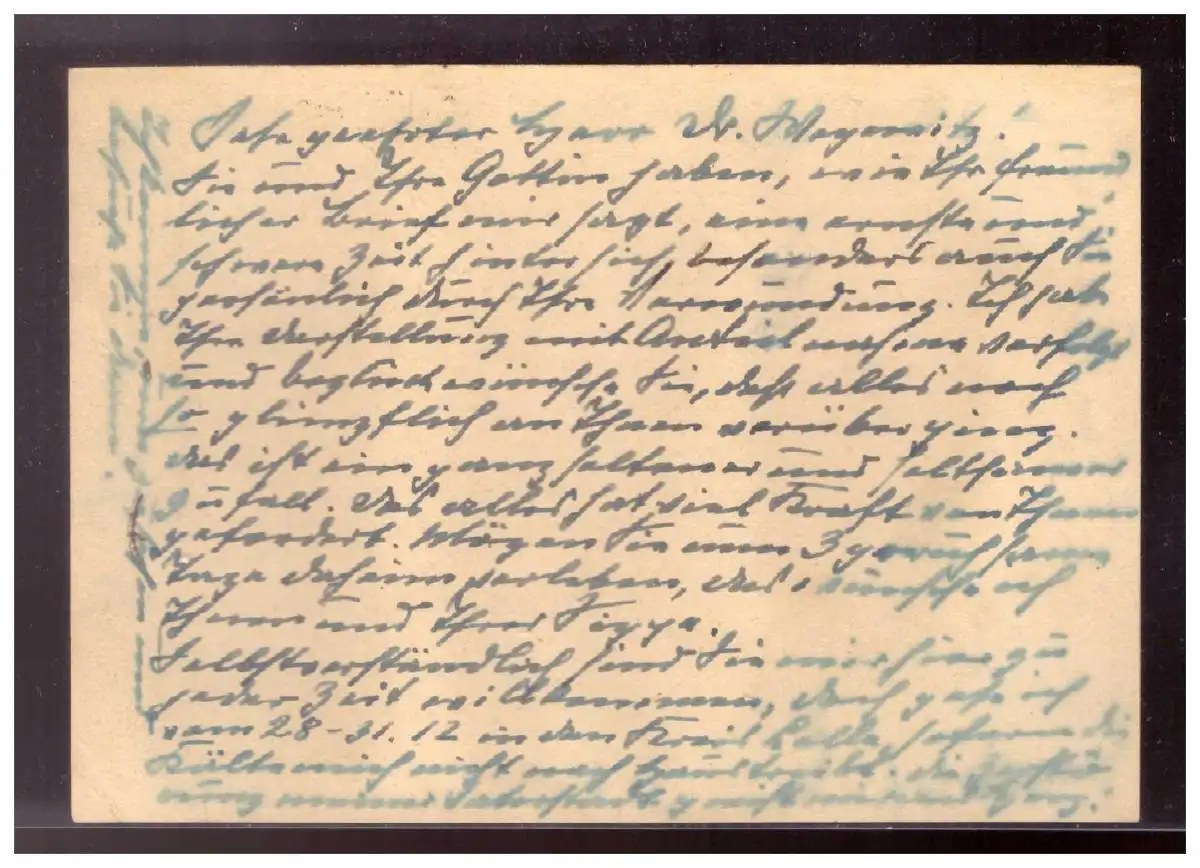 Sehr geehrter Herr Dr. Wegewitz!
Sie und Ihre Gattin haben, wie Ihr freund-
licher Brief mir sagt, eine ernste und
schwere Zeit hinter sich, besonders auch Sie
persönlich durch Ihre Verwundung. Ich habe
Ihre Darstellung mit Anteilnahme verfolgt
und beglückwünsche Sie, dass alles noch
so glimpflich an Ihnen vorüber ging.
Das ist ein ganz seltener und seltsamer
Zufall. Das alles hat viel Kraft von Ihnen
gefordert. Mögen Sie nun 3 geruhsame
Tage daheim verleben, das wünsche ich
Ihnen und Ihrer Sippe.
Selbstverständlich sind Sie mir hier zu
jeder Zeit willkommen, doch gehe ich
vom 28-31.12 in den Kreis Celle, sofern die
Kälte mich nicht nach Haus treibt. Die
meiner